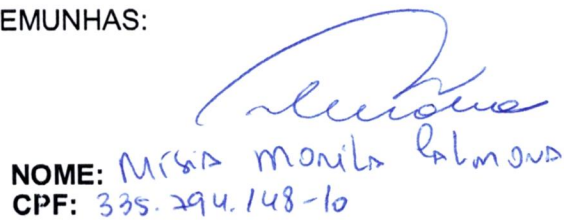 EMUNHAS:
NOME: Mísia Monila Calmona
CPF: 335.794.148-10